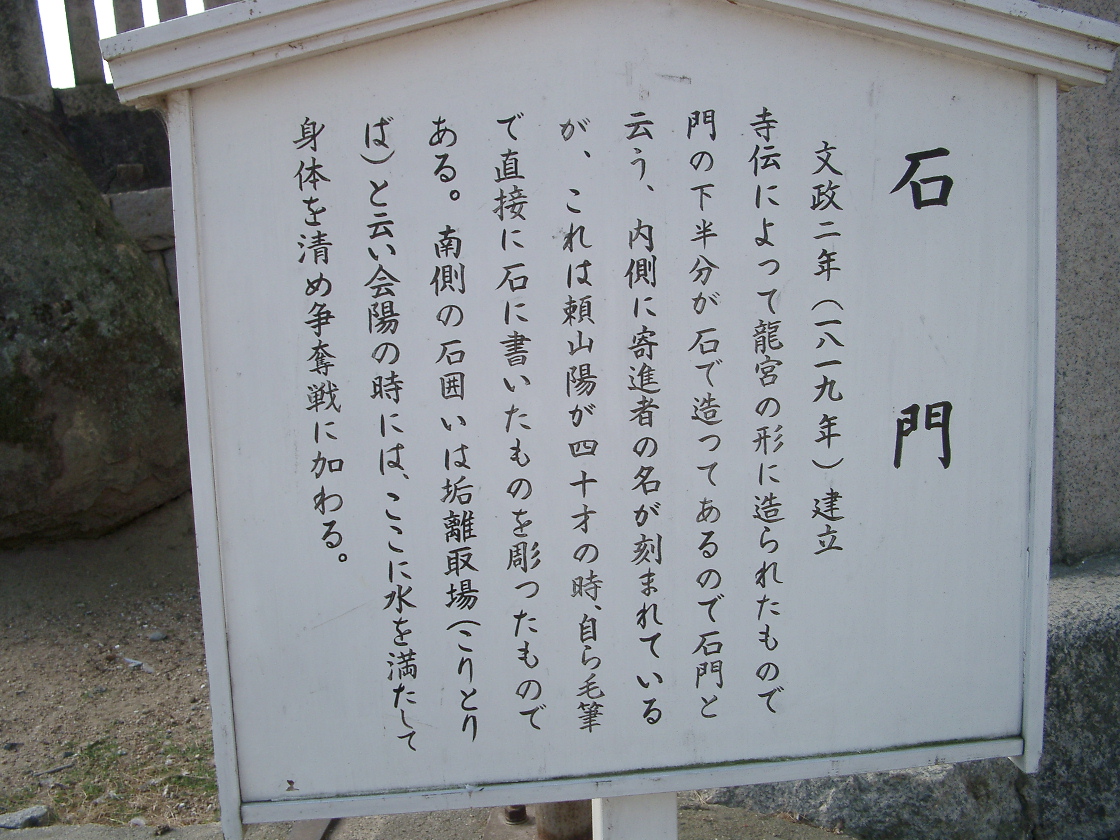 石門
文政二年（一八一九年）建立
寺伝によって龍宮の形に造られたもので
門の下半分が石で造つてあるので石門と
云う、内側に寄進者の名が刻まれている
が、これは頼山陽が四十才の時、自ら毛筆
で直接に石に書いたものを彫つたもので
ある。南側の石囲いは垢離取場（こりとり
ば）と云い会陽の時には、ここに水を満たして
身体を清め争奪戦に加わる。